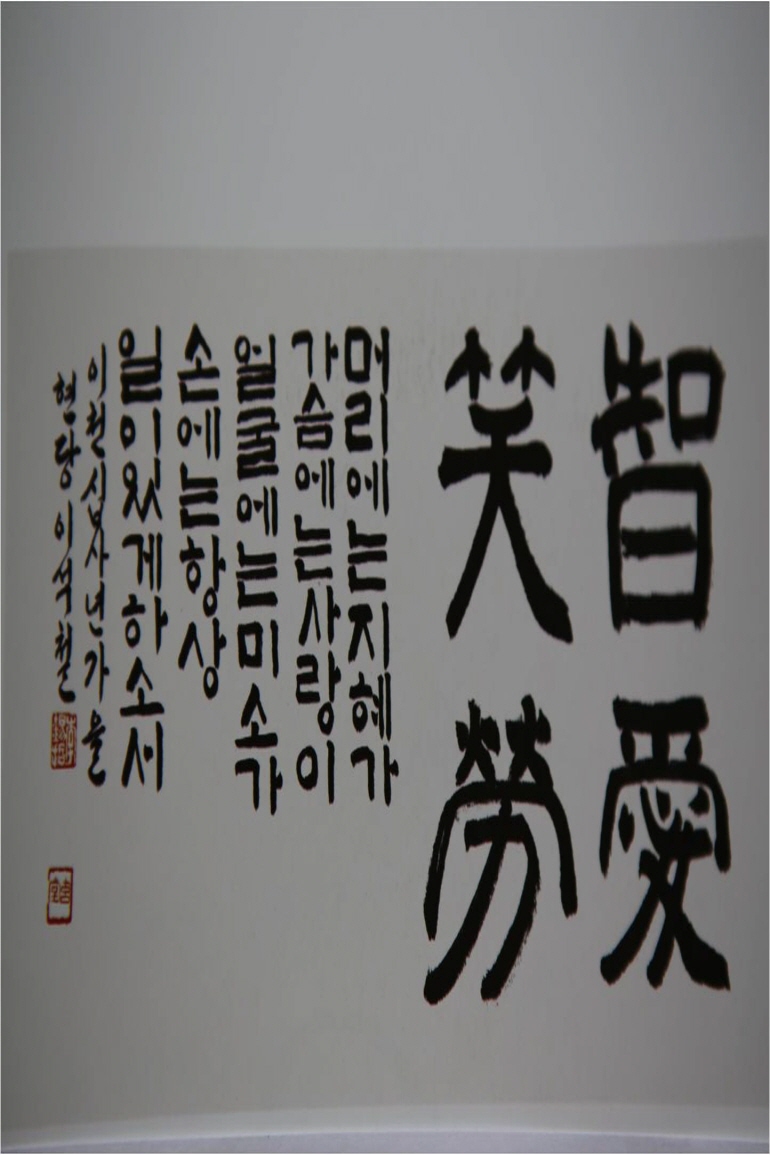 智愛
笑勞
머리에는지혜가
가슴에는사랑이
얼굴에는미소가
손에는항상
일이있게하소서
이천십사년가을
현당이석철